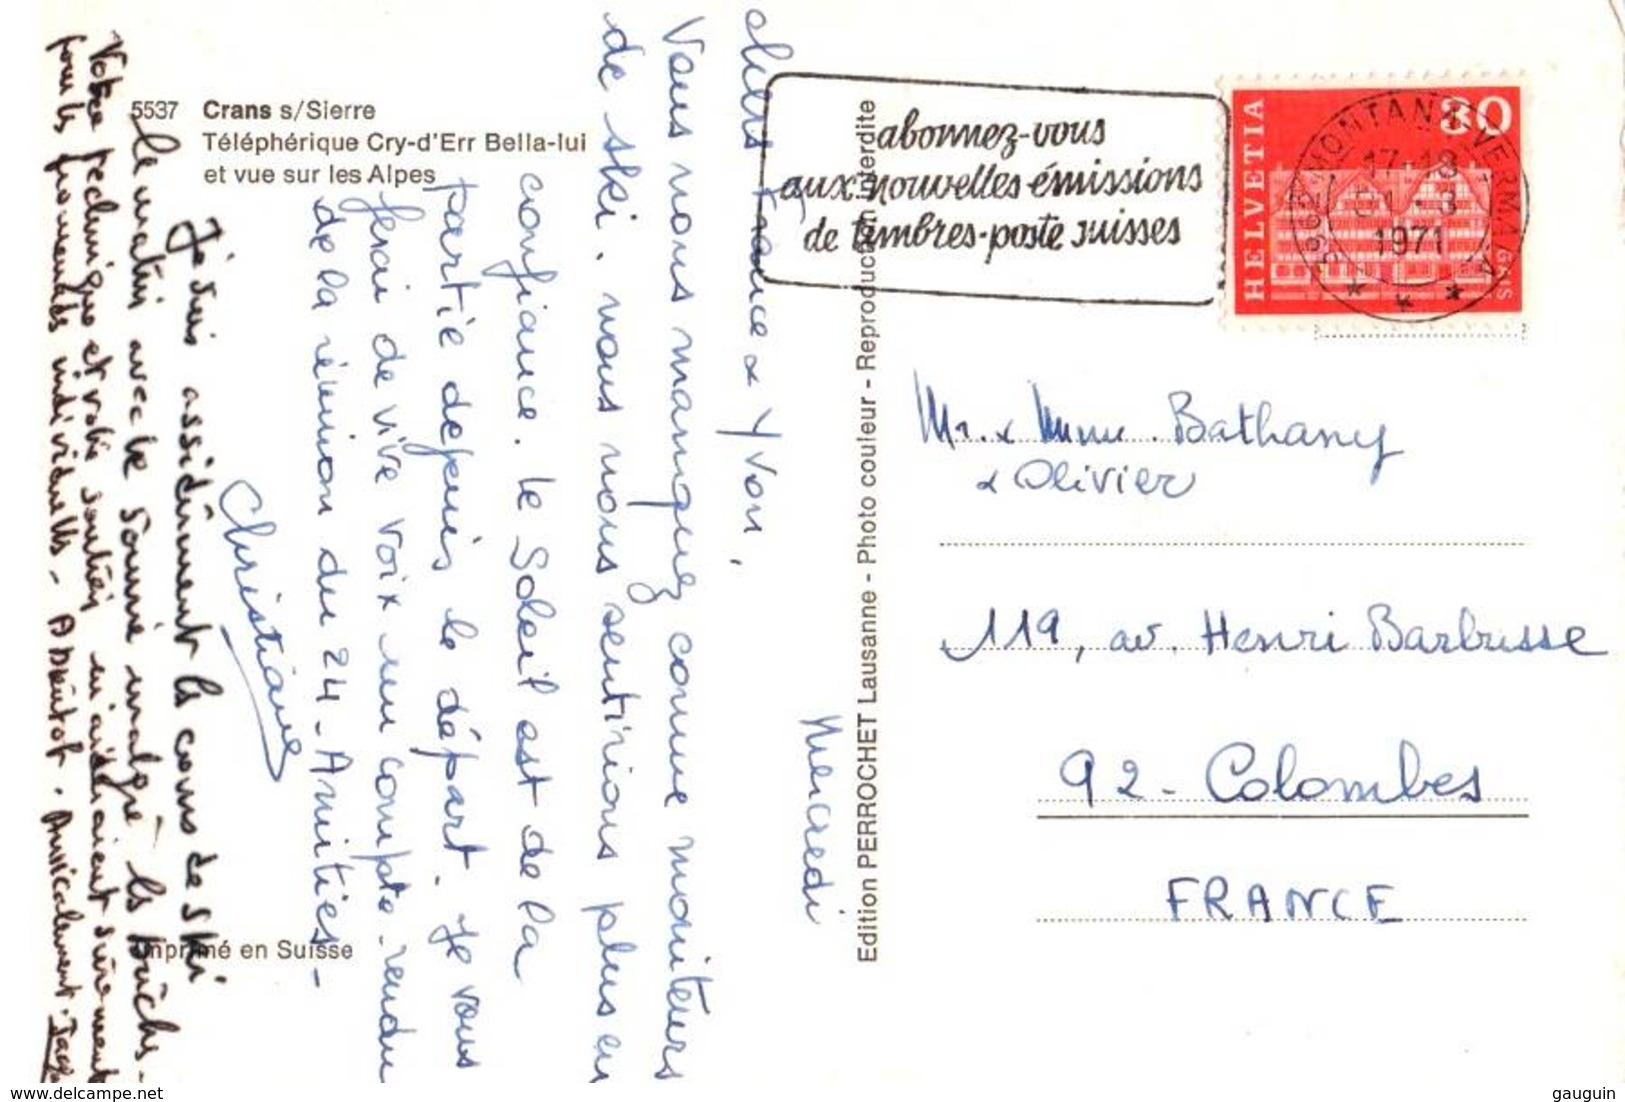 5537 Crans s/Sierre
Téléphérique Cry-d'Err Bella-lui
et vue sur les Alpes
Imprimé en Suisse
Edition PERROCHET Lausanne - Photo couleur - Reproduction interdite
abonnez-vous
aux nouvelles émissions
de timbres-poste suisses
HELVETIA
30
3962 MONTANA-VERMALA
17-18
1971
Mercredi
chers France & Yvon,
Vous nous manquez comme moniteurs
de ski. nous nous sentirions plus en
confiance. le Soleil est de la
partie depuis le départ. Je vous
ferai de vive voix un compte-rendu
de la réunion du 24 - Amitiés -
Christiane
Je suis assidûment les cours de ski
le matin avec le Sonné malgré les bûches -
Votre technique et votre soutien m'aideraient sûrement
pour les promenades individuelles - A Bientôt. Amicalement.
Mr. & Mme. Bathany
& Olivier
119, av. Henri Barbusse
92 - Colombes
FRANCE
www.delcampe.net
gauguin